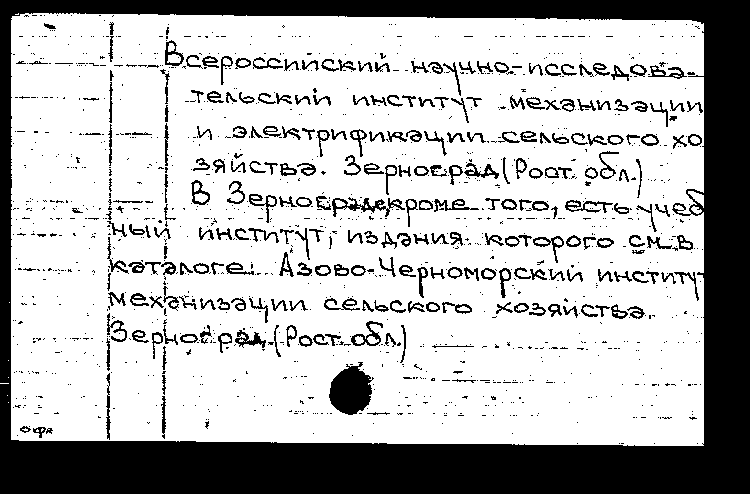 Всероссийский научно-исследова-
тельский институт механизации
и электрификации сельского хо
зяйства. Зерноград (Рост. обл.)
В Зернограде, кроме того, есть учеб
ный институт, издания которого см. в
каталоге: Азово-Черноморский институт
механизации сельского хозяйства.
Зерноград (Рост. обл.)